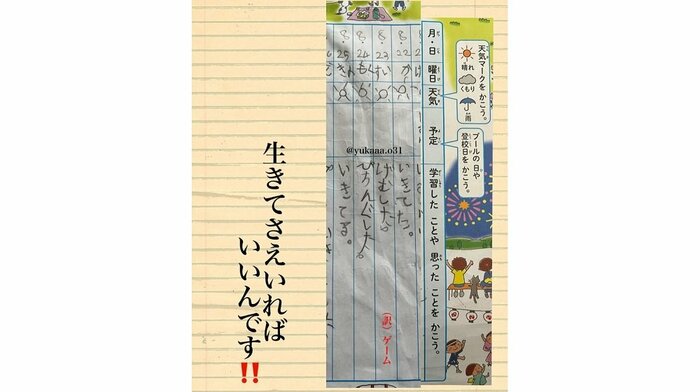 天気マークを かこう。
晴れ
くもり
雨
プールの 日や
登校日を かこう。
月・日
曜日
天気
予定
学習した ことや 思った ことを かこう。
か
いきてた。
8.23
すい
げむした。
(訳)ゲーム
8.24
もく
8.25
きん
いきてる。
@yukaaa.o31
生きてさえいれば
いいんです‼️